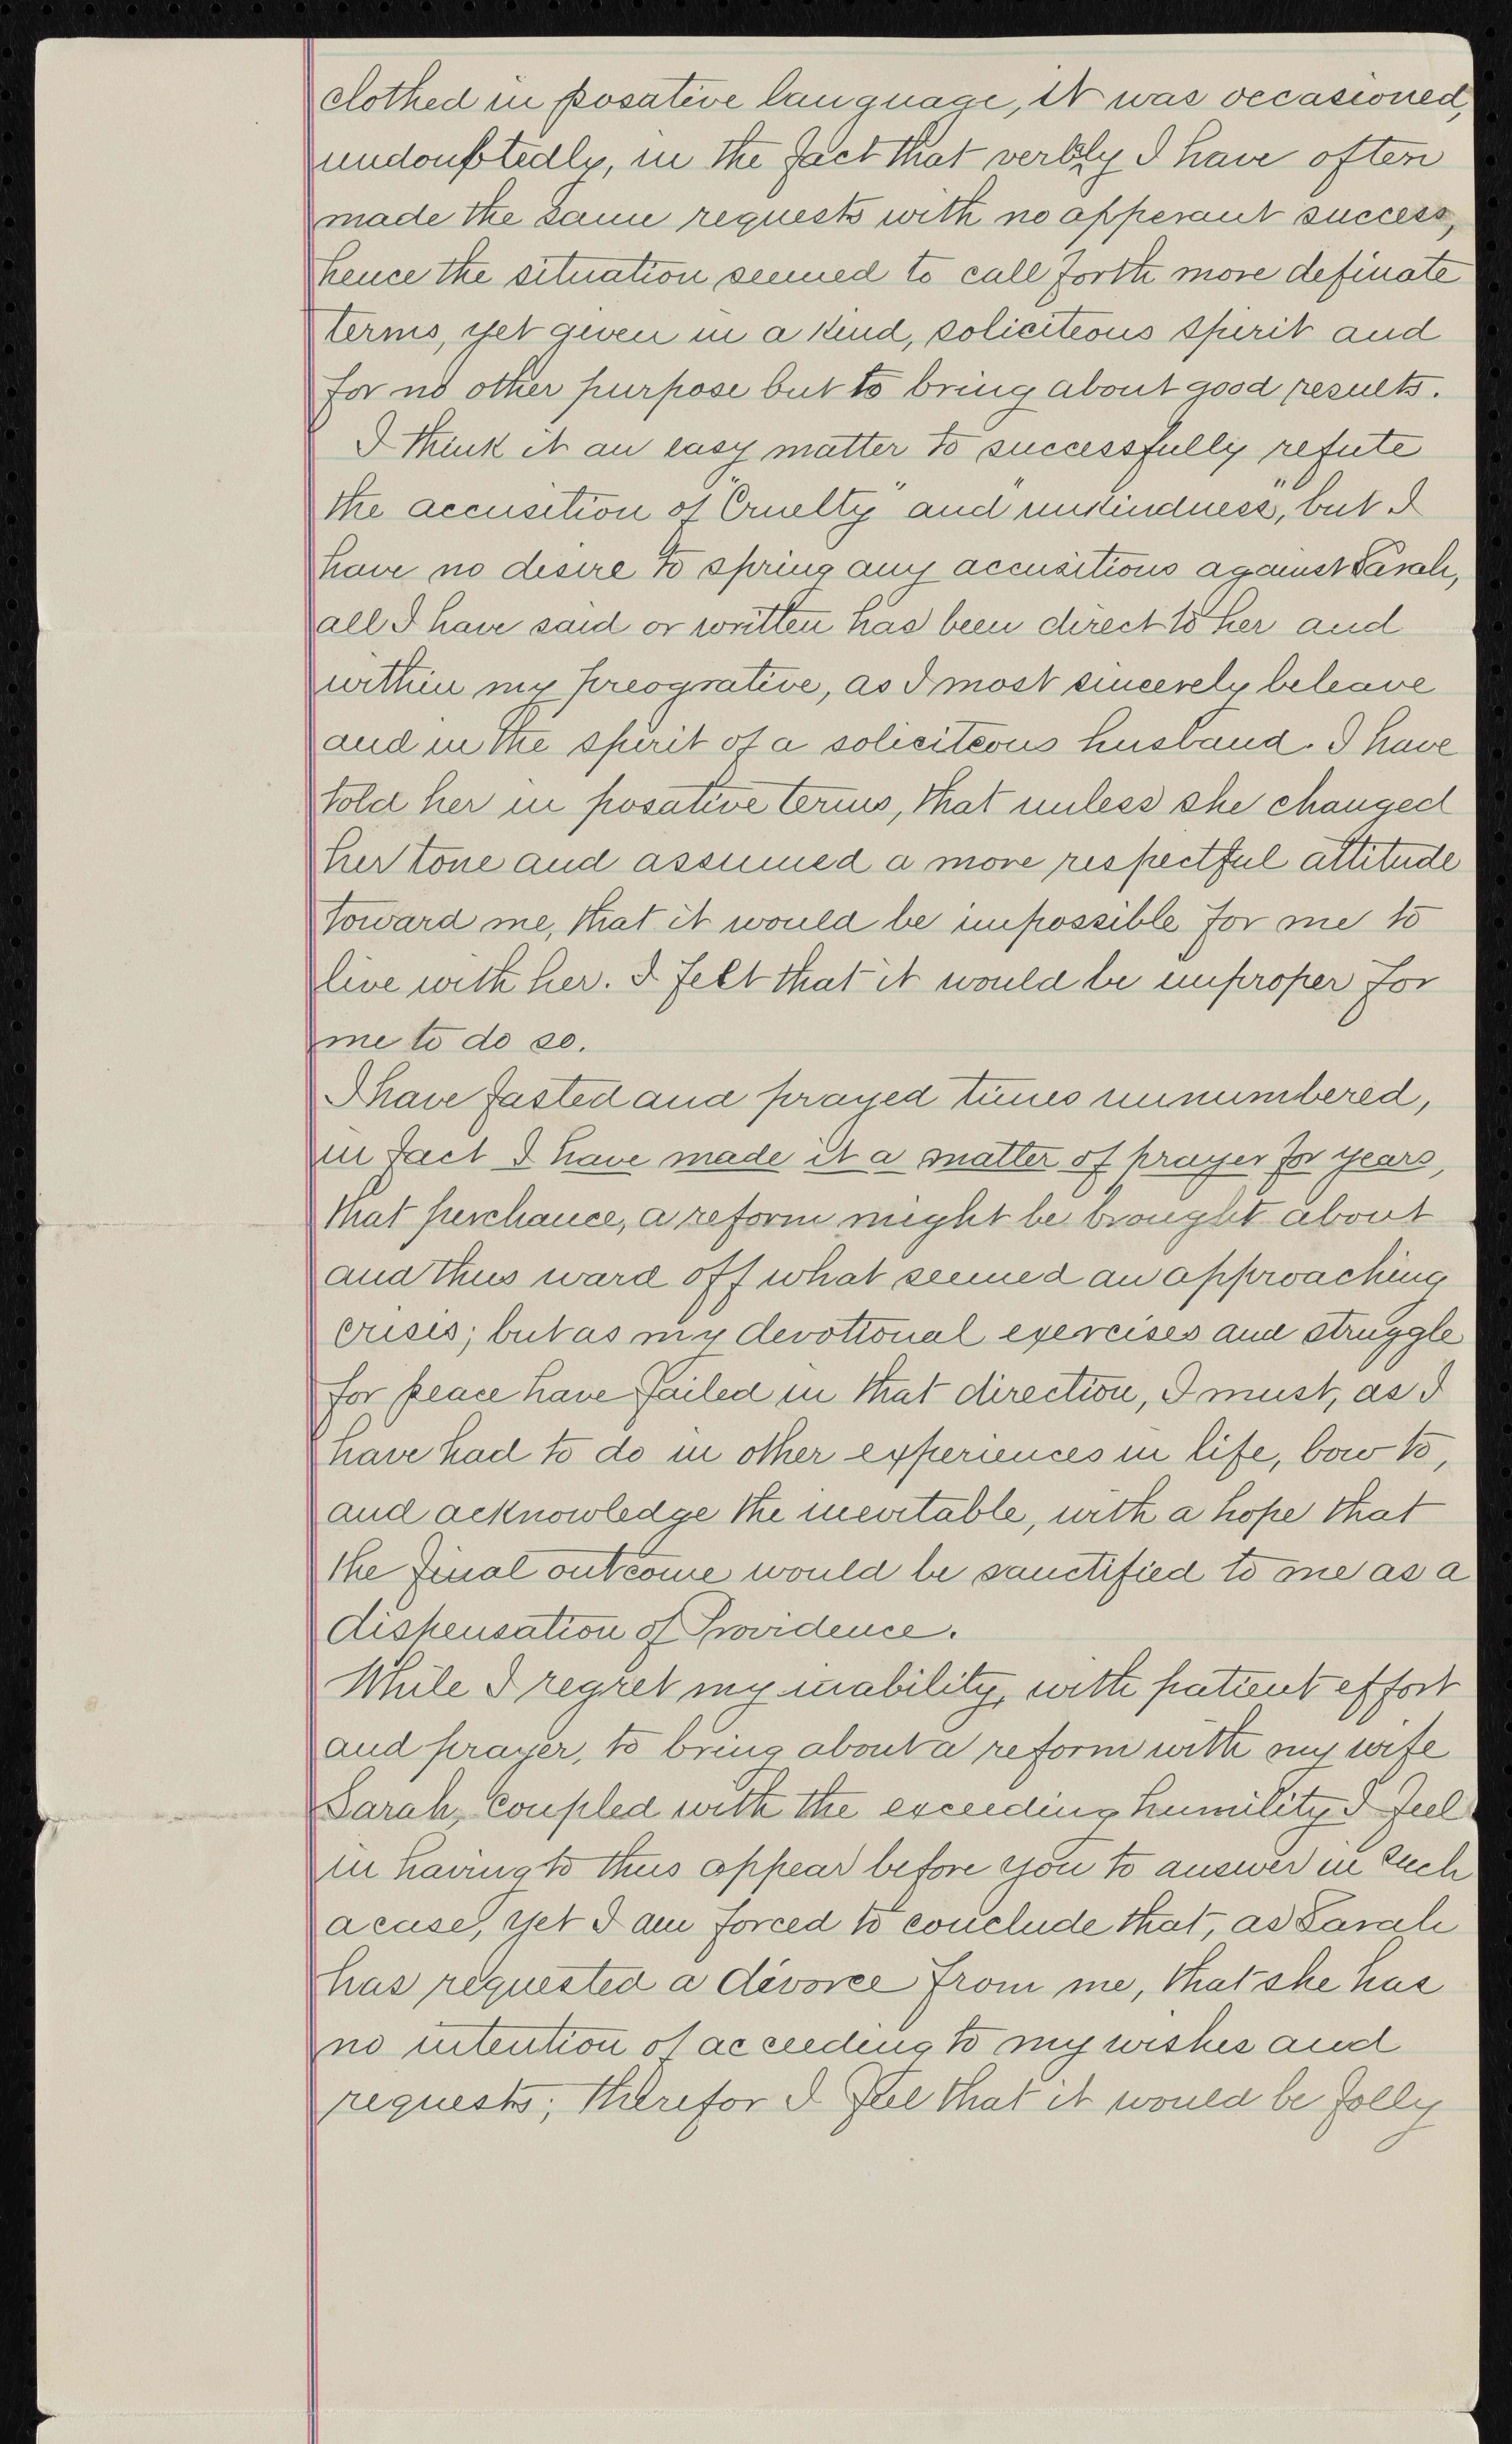 clothed in posative language, it was occasioned,
undouptedly, in the fact that verbly I have often
made the same requests with no apperant success,
hence the situation seemed to call forth more definate
terms, yet given in a kind, soliciteous spirit and
for no other purpose but to bring about good results.
I think it an easy matter to successfully refute
the accusition of "Cruelty" and "unkindness", but I
have no desire to spring any accusitions against Sarah,
all I have said or written has been direct to her and
within my preogrative, as I most sincerely beleave
and in the spirit of a soliciteous husband. I have
told her in posative terms, that unless she changed
her tone and assumed a more respectful attitude
toward me, that it would be impossible for me to
live with her. I felt that it would be improper for
me to do so.
I have fasted and prayed times unnumbered,
in fact I have made it a matter of prayer for years,
that perchance, a reform might be brought about
and thus ward off what seemed an approaching
crisis; but as my devotional exercises and struggle
for peace have failed in that direction, I must, as I
have had to do in other experiences in life, bow to,
and acknowledge the inevitable, with a hope that
the final outcome would be sanctified to me as a
dispensation of Providence.
While I regret my inability, with patient effort
and prayer, to bring about a reform with my wife
Sarah, coupled with the exceeding humility I feel
in having to thus appear before you to answer in such
a case, yet I am forced to conclude that, as Sarah
has requested a divorce from me, that she has
no intention of acceeding to my wishes and
requests; therefor I feel that it would be folly